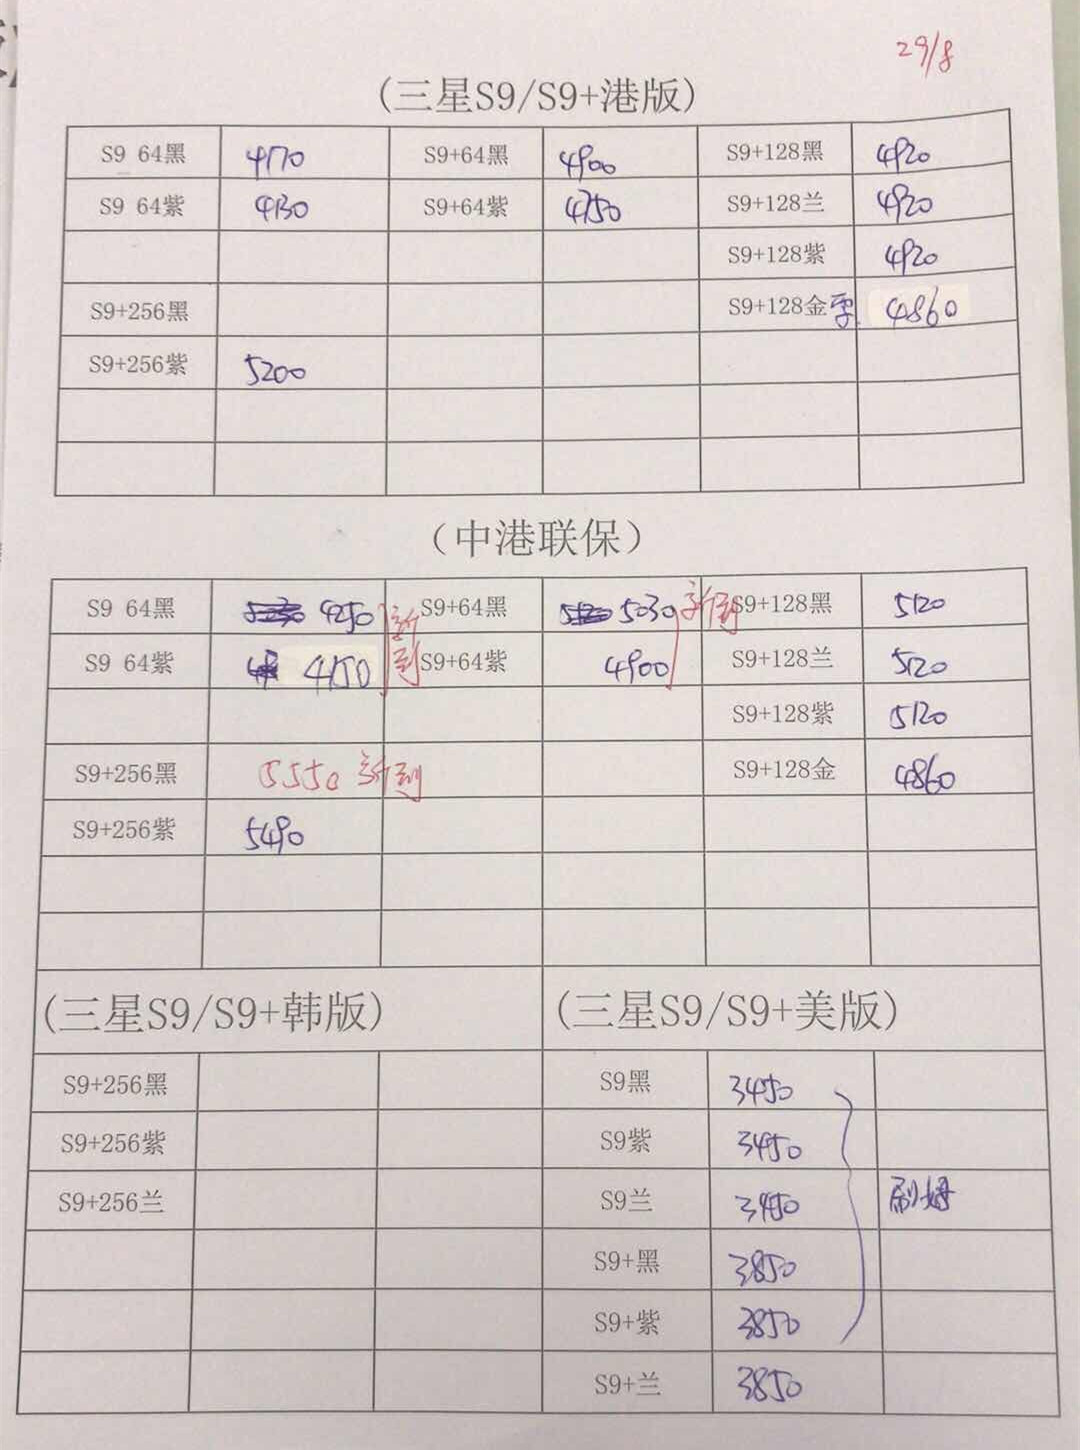 29/8
(三星S9/S9+港版)
S9 64黑 4170 S9+64黑 4900 S9+128黑 4920
S9 64紫 4130 S9+64紫 4750 S9+128兰 4920
S9+128紫 4920
S9+256黑 S9+128金 4860
S9+256紫 5200
(中港联保)
S9 64黑 4250 新到 S9+64黑 5030 新到 S9+128黑 5120
S9 64紫 4150 S9+64紫 4900 S9+128兰 5120
S9+128紫 5120
S9+256黑 5550 新到 S9+128金 4860
S9+256紫 5490
(三星S9/S9+韩版) (三星S9/S9+美版)
S9+256黑 S9黑 3450
S9+256紫 S9紫 3450
S9+256兰 S9兰 3450
S9+黑 3850
S9+紫 3850
S9+兰 3850